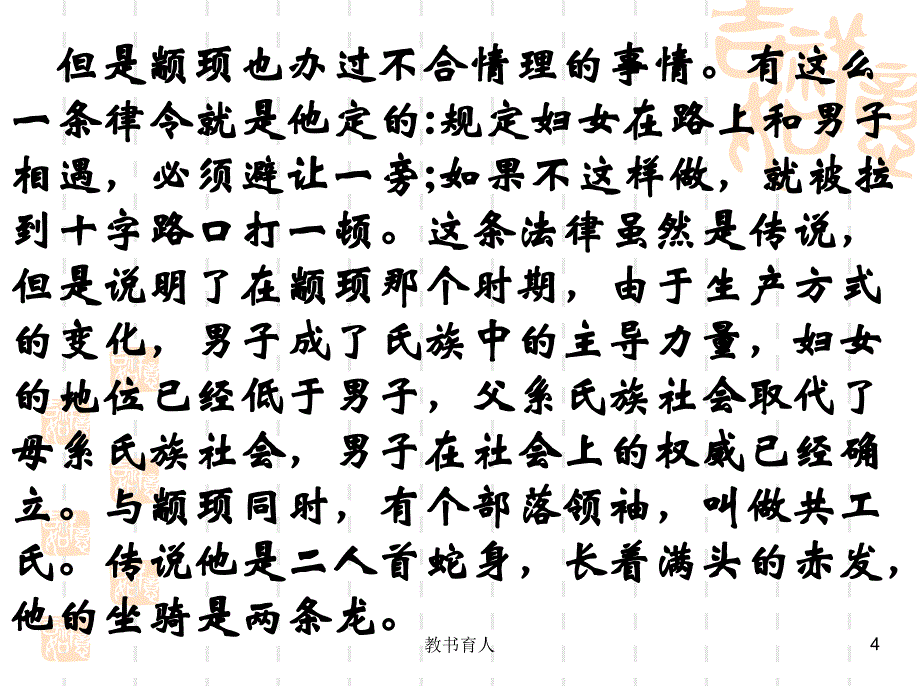 但是颛顼也办过不合情理的事情。有这么
一条律令就是他定的:规定妇女在路上和男子
相遇，必须避让一旁;如果不这样做，就被拉
到十字路口打一顿。这条法律虽然是传说，
但是说明了在颛顼那个时期，由于生产方式
的变化，男子成了氏族中的主导力量，妇女
的地位已经低于男子，父系氏族社会取代了
母系氏族社会，男子在社会上的权威已经确
立。与颛顼同时，有个部落领袖，叫做共工
氏。传说他是二人首蛇身，长着满头的赤发，
他的坐骑是两条龙。
教书育人
4